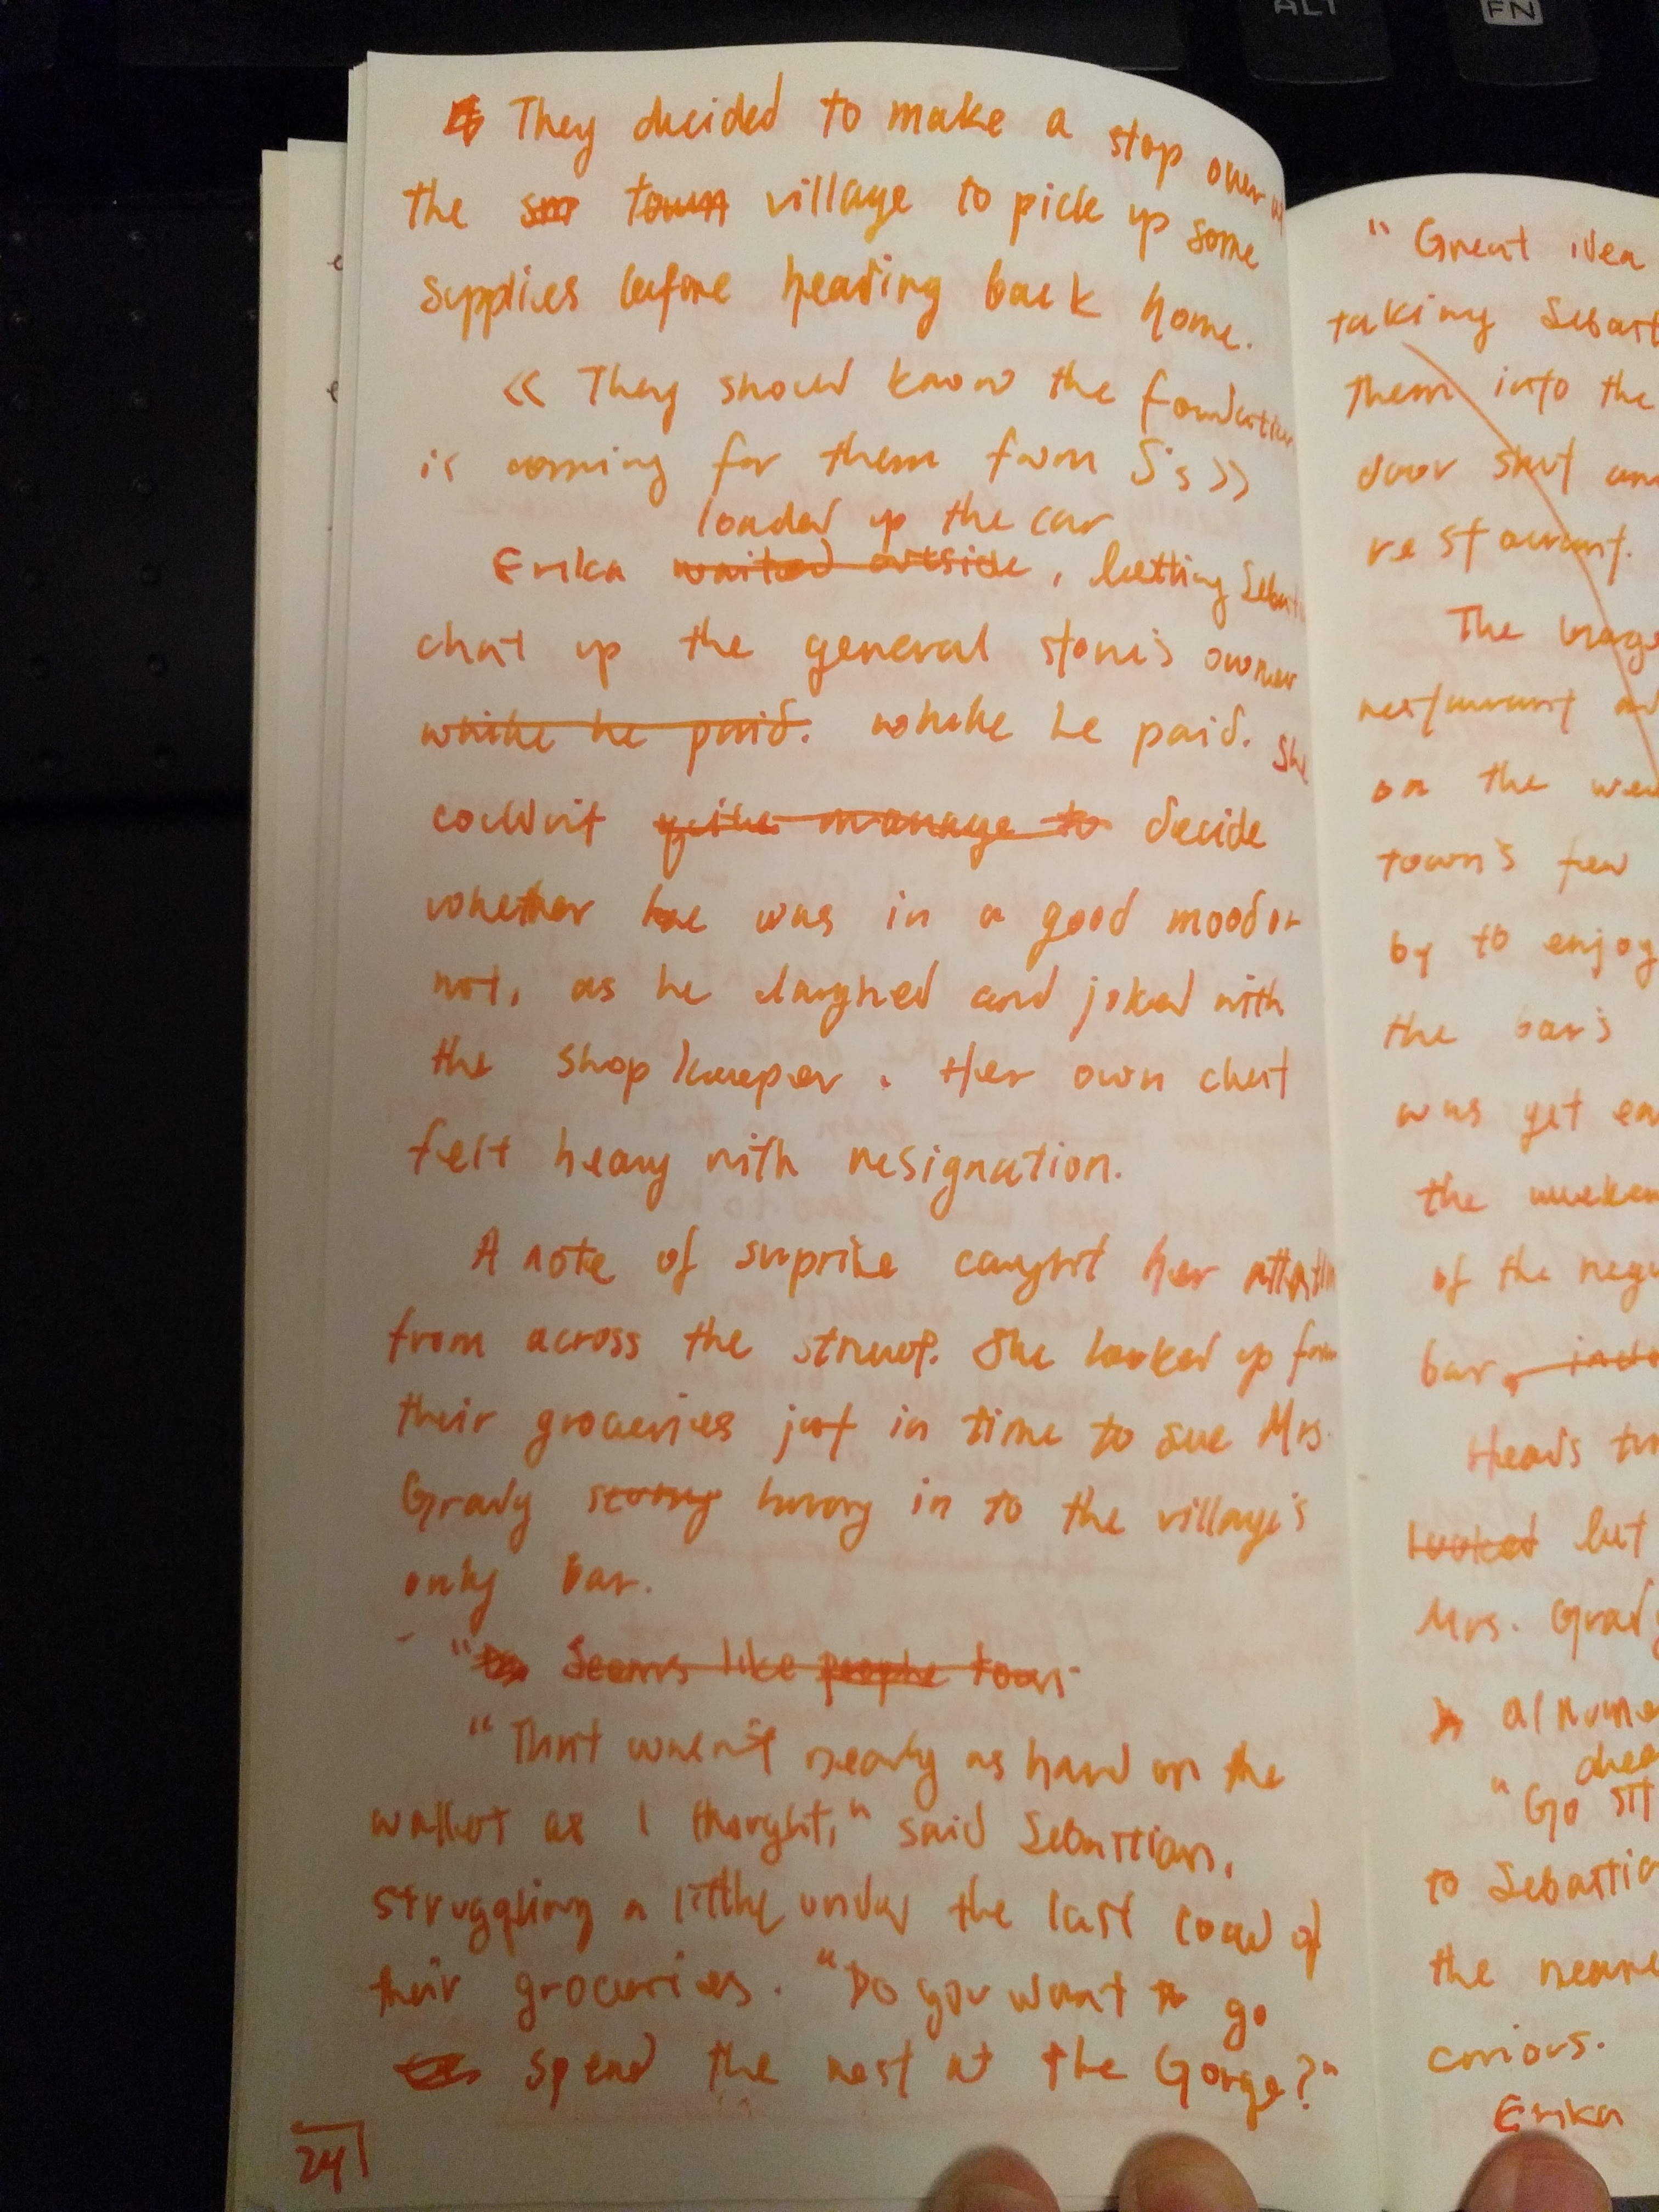 ALT
FN
They decided to make a stop over at
the ~~sm~~ ~~town~~ village to pick up some
supplies before heading back home.
<< They should know the foundation
is coming for them from S's >>
loaded up the car
Erika ~~waited outside~~, letting Sebast
chat up the general store's owner
~~while he paid.~~ while he paid. She
couldn't ~~quite manage to~~ decide
whether he was in a good mood or
not, as he laughed and joked with
the shopkeeper. Her own chest
felt heavy with resignation.
A note of surprise caught her attention
from across the street. She looked up from
their groceries just in time to see Mrs.
Grady hurry in to the village's
only bar.
"~~Seems like people town~~
"That wasn't nearly as hard on the
wallet as I thought," said Sebastian,
struggling a little under the last load of
their groceries. "Do you want to go
spend the rest at the Gorge?"
24
"Great idea
taking Sebast
them into the
door shut an
restaurant.
The
restaurant
on the
town's few
by to enjoy
the bar's
was yet
the
of the
bar,
Heads
~~looked~~ but
Mrs. Grady
"Go sit
to Sebastia
the neare
curious.
Erika